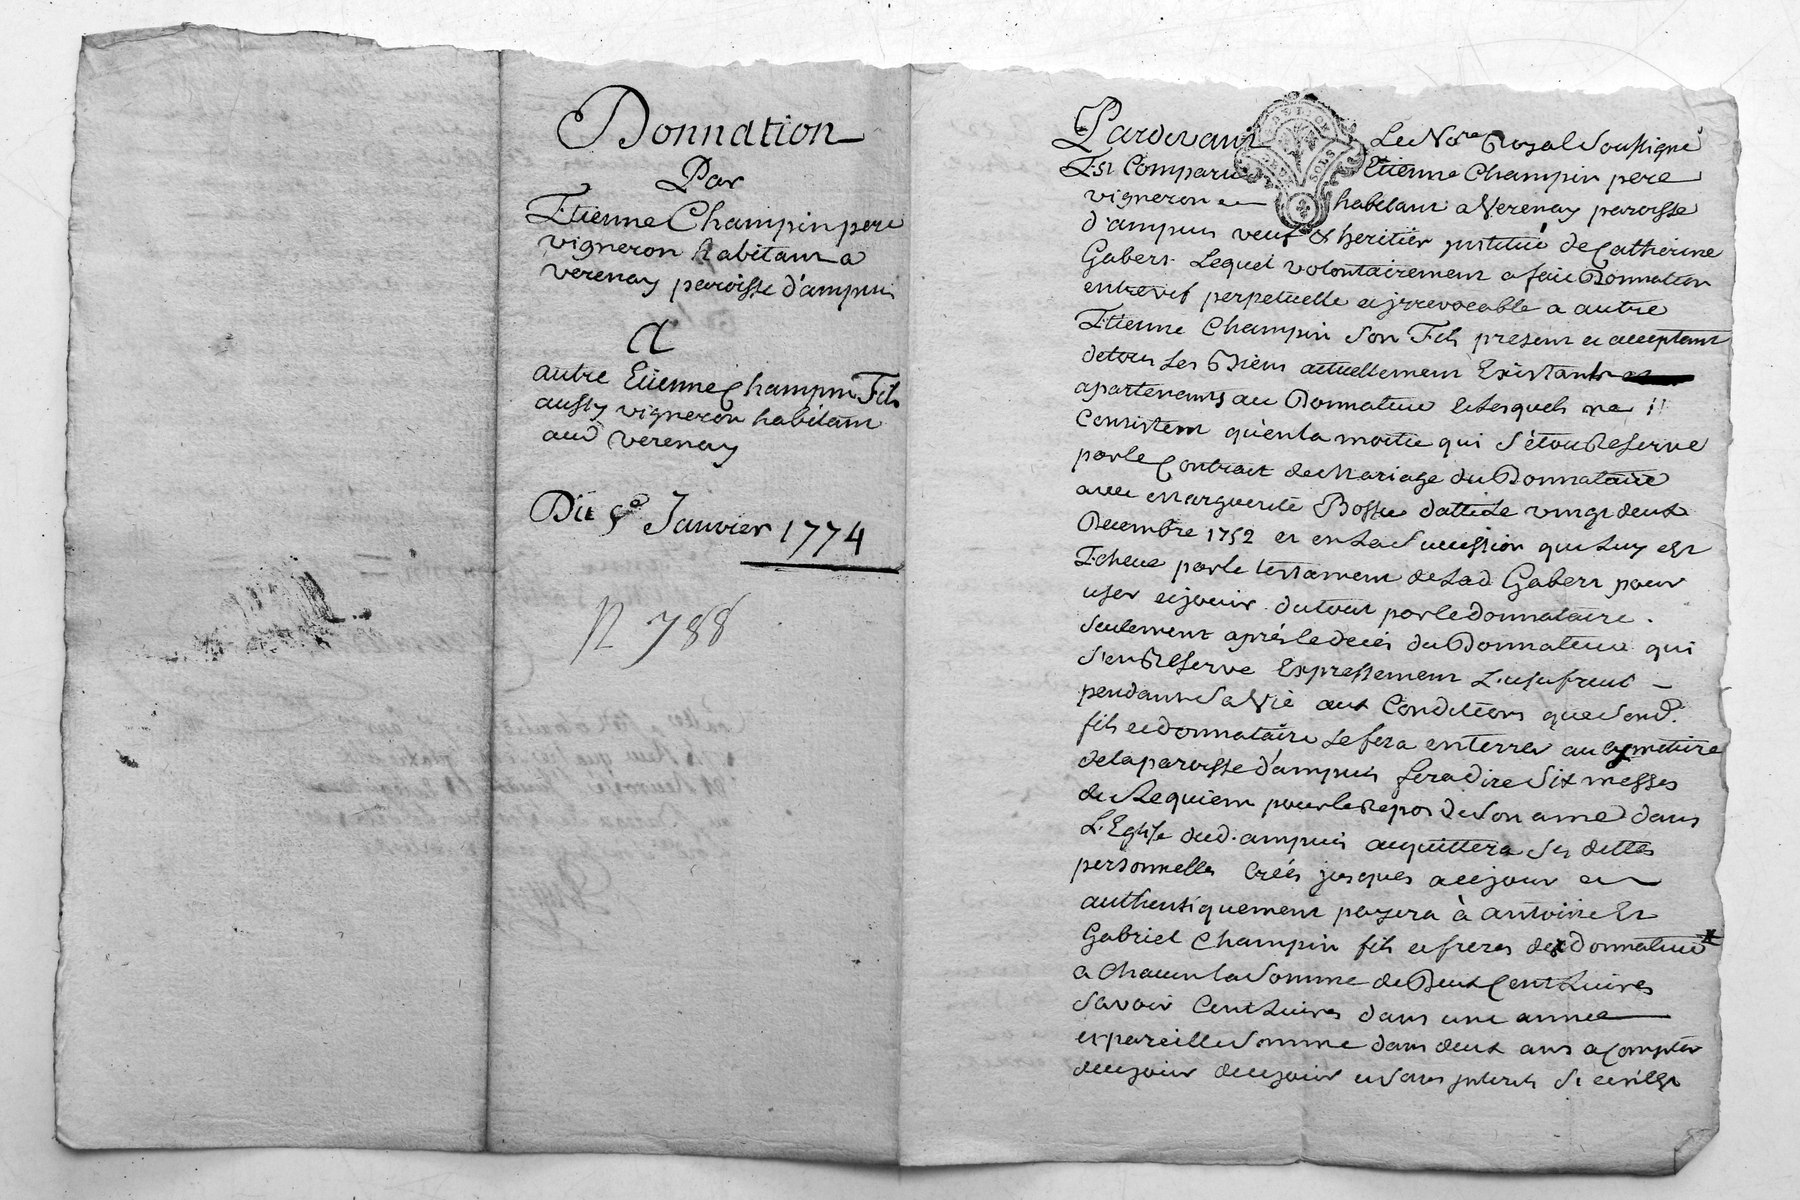 Donnation
Par
Etienne Champin pere
vigneron habitant a
verenay paroisse d'ampuis
A
autre Etienne Champin Fils
aussy vigneron habitant
aud verenay
Du 9e Janvier 1774
N 788
Pardevant Le Nore Royal Soussigné
Est Comparu Etienne Champin pere
vigneron habitant a Verenay paroisse
d'ampuis veuf & heritier institué de Catherine
Gabert Lequel volontairement a fait Donnation
entrevif perpetuelle et jrrevocable a autre
Etienne Champin Son Fils present et acceptant
detous Ses Biens actuellement Existants
apartenants au Donnateur Lesquels ne
Consistent qu'enla moitié qui S'étoit Reservé
parle Contrat de Mariage du Donnataire
avec Marguerite Bossu datté de vingt deux
Decembre 1752 et en La Succession qui Luy est
Echeue parle testament de Lad Gabert pour
user et jouir du tout parle donnataire
Seulement après le decés du Donnateur qui
S'en Reserve Expressement L'usufruit
pendant Sa Vie aux Conditions que Sond.
fils et donnataire Le fera enterrer au Cymetiere
de la paroisse d'ampuis fera dire Six messes
de Requiem pour le Repos de Son ame dans
L'Eglise dud. ampuis acquittera Ses dettes
personnelles Créés jusques au jour
authentiquement payera à antoine Et
Gabriel Champin fils et freres des Donnateur
a Chacun la Somme de Deux Cent Livres
Savoir Cent Livres dans une année
et pareille Somme dans deux ans a Compter
du jour du et Sans jnterets Si